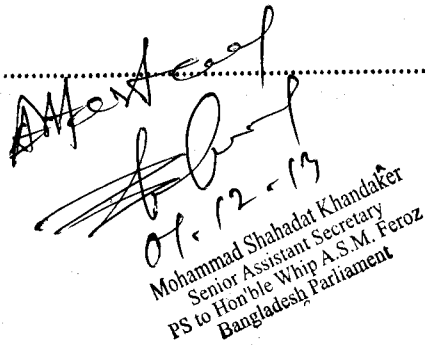 Attested
01-12-13
Mohammad Shahadat Khandaker
Senior Assistant Secretary
PS to Hon'ble Whip A.S.M. Feroz
Bangladesh Parliament